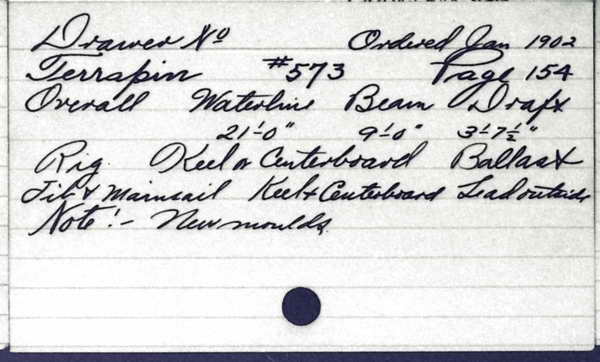 Drawer No Ordered Jan 1902
Terrapin #573 Page 154
Overall Waterline Beam Draft
21'-0" 9'-0" 3'-7½"
Rig. Keel or Centerboard Ballast
Jib & Mainsail Keel & Centerboard Lead outside
Note:- New moulds.